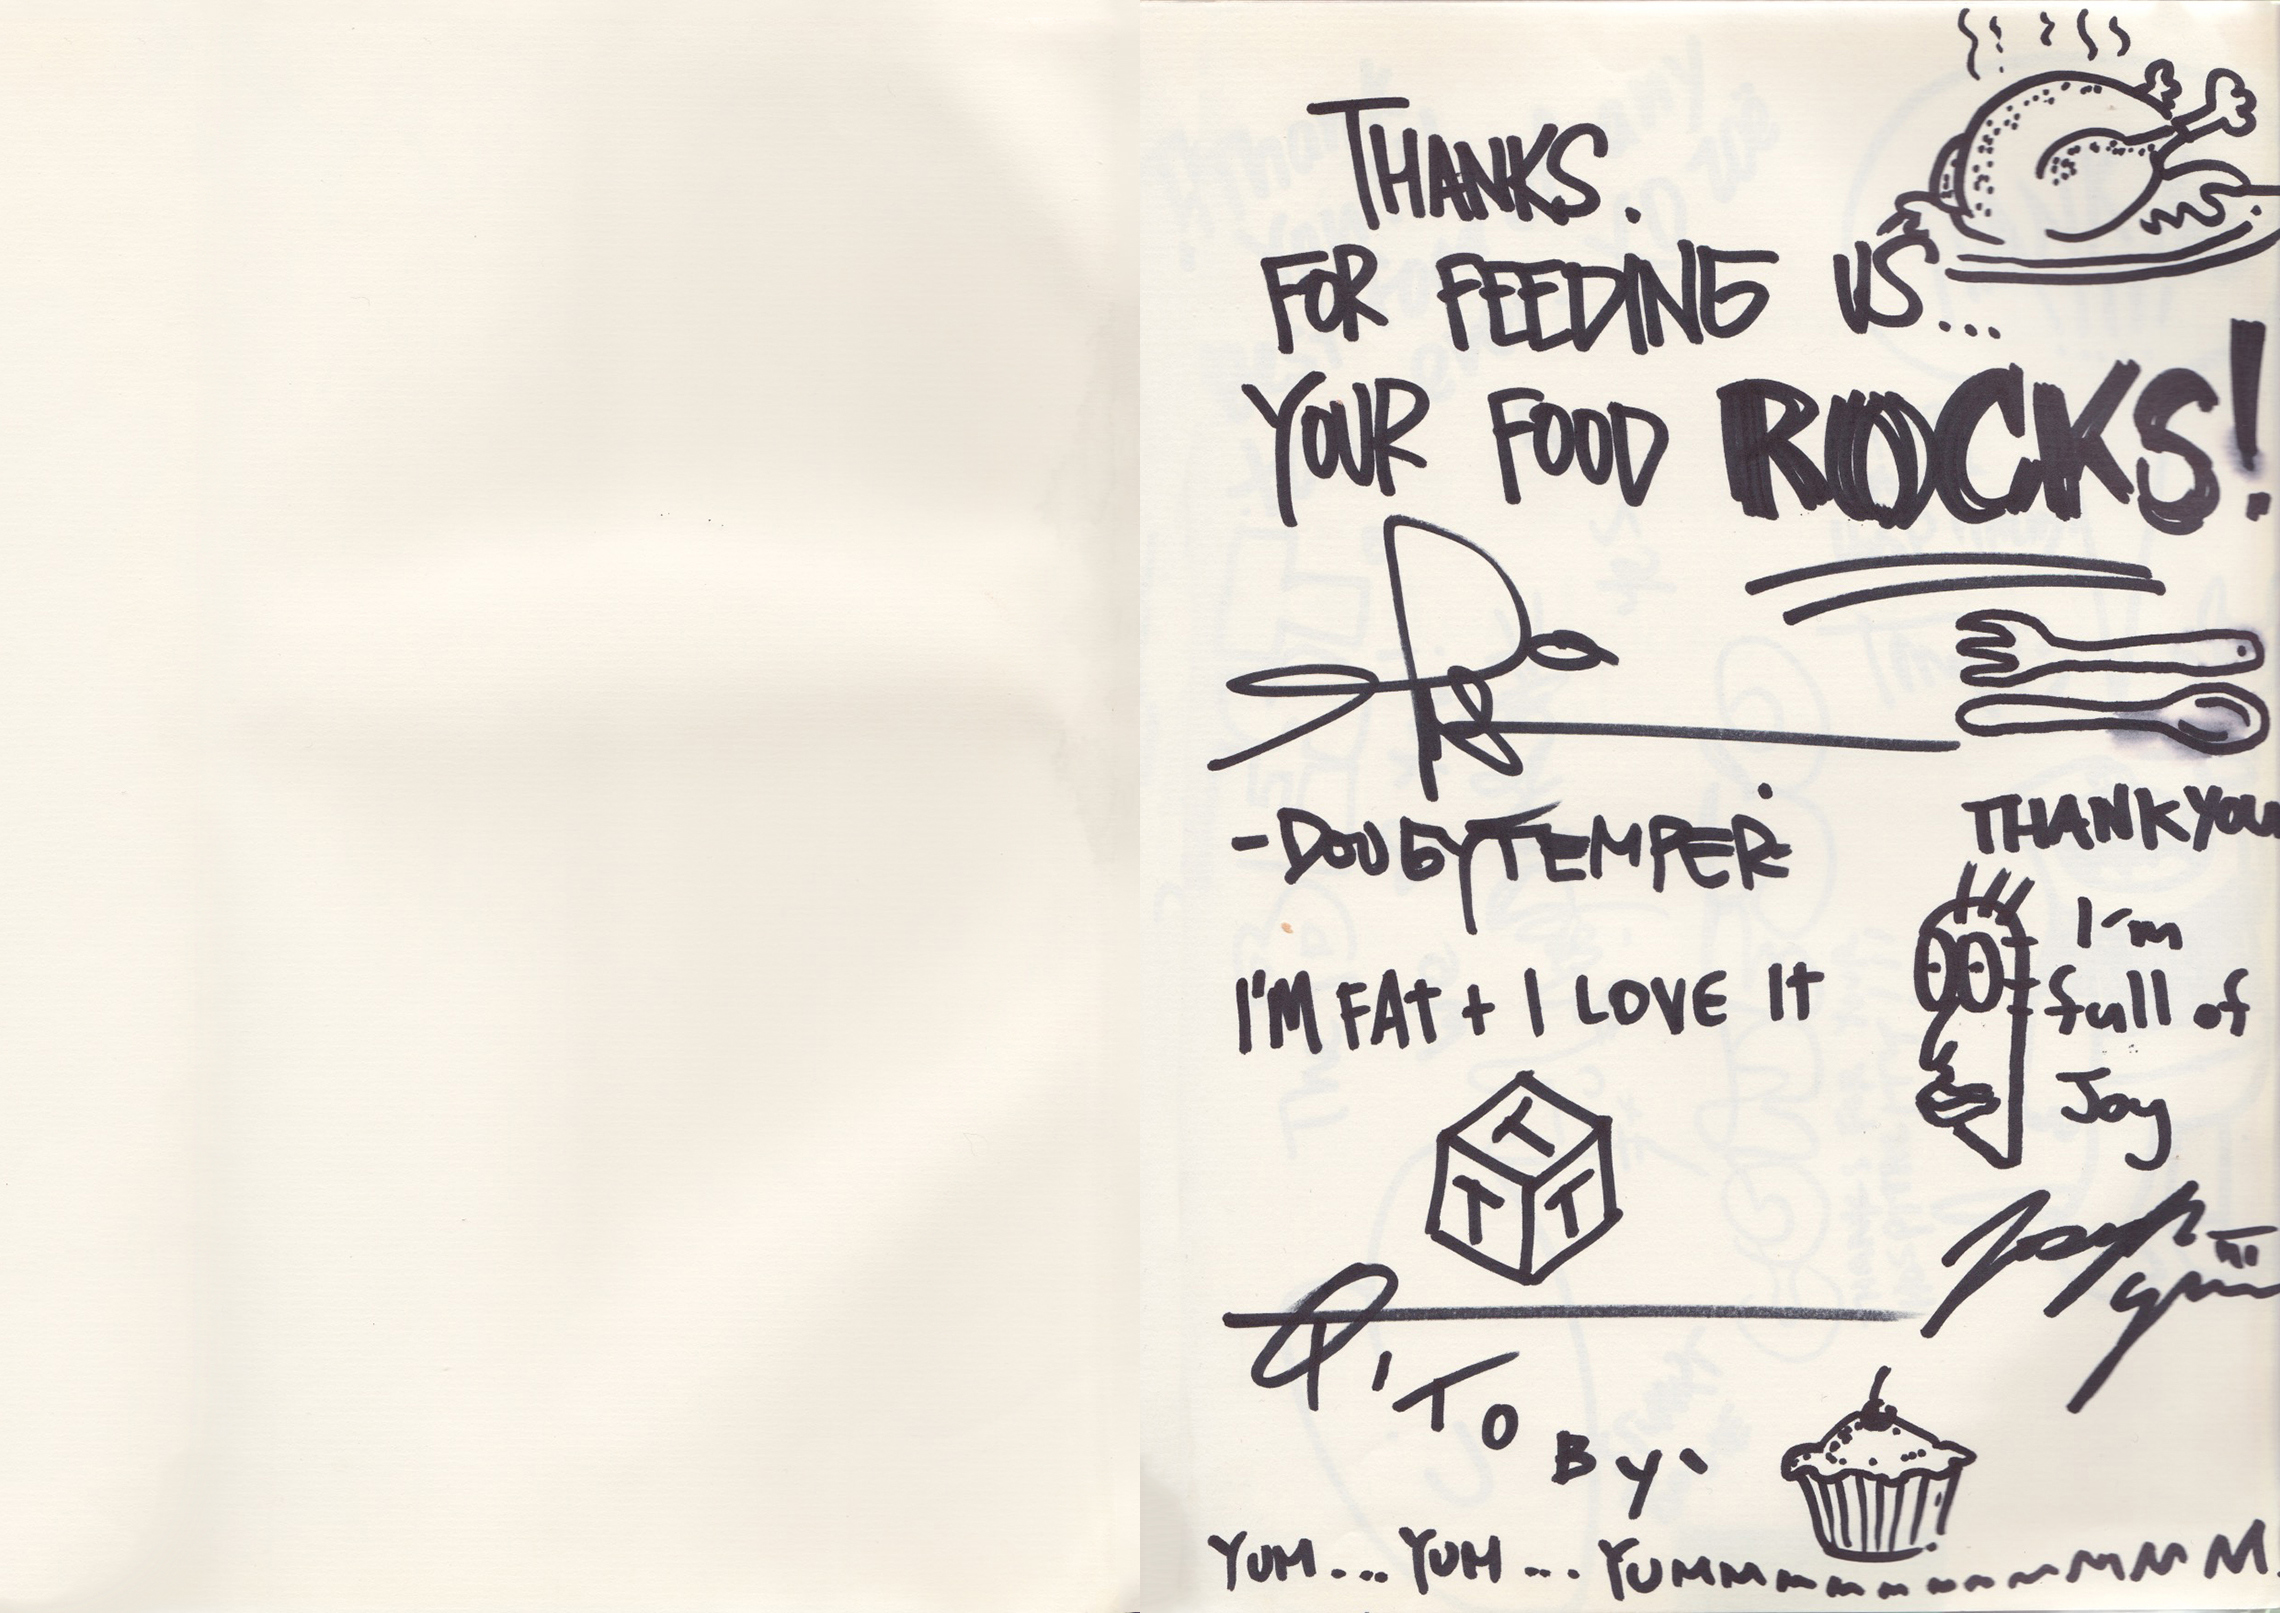 THANKS.
FOR FEEDING US...
YOUR FOOD ROCKS!
-DOUGYTEMPER.
THANK YOU
I'm
full of
Joy
I'M FAT + I LOVE IT
T
T T
TOBY
YUM... YUM... YUMMmmmmmmmMMMM.